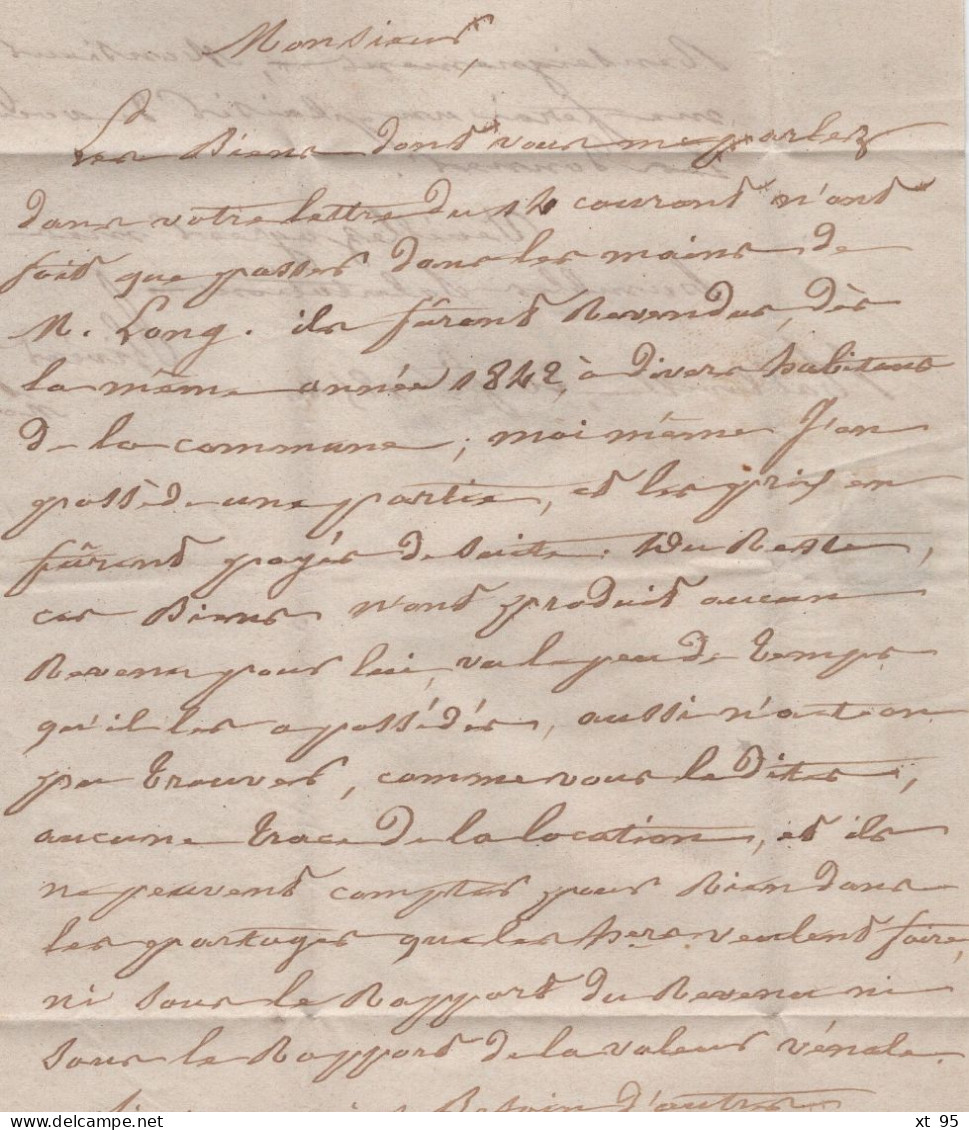 Monsieur
Les Biens dont vous me parlez
dans votre lettre du 14 courant n'ont
fait que passer dans les mains de
M. Long. ils fûrent Revendus, dès
la même année 1842, à divers habitans
de la commune; moi même J'en
possède une partie, et les prix en
fûrent payés de suite. Du Reste,
ces Biens n'ont produit aucun
Revenu pour lui, vu le peu de temps
qu'il les a possédés, aussi n'a-t-on
pu trouver, comme vous le dites,
aucune trace de la location, et ils
ne peuvent compter pour Rien dans
les partages que les hers veulent faire,
ni sous le Rapport du Revenu ni
sous le Rapport de la valeur vénale.
Besoin d'autres
xt 95